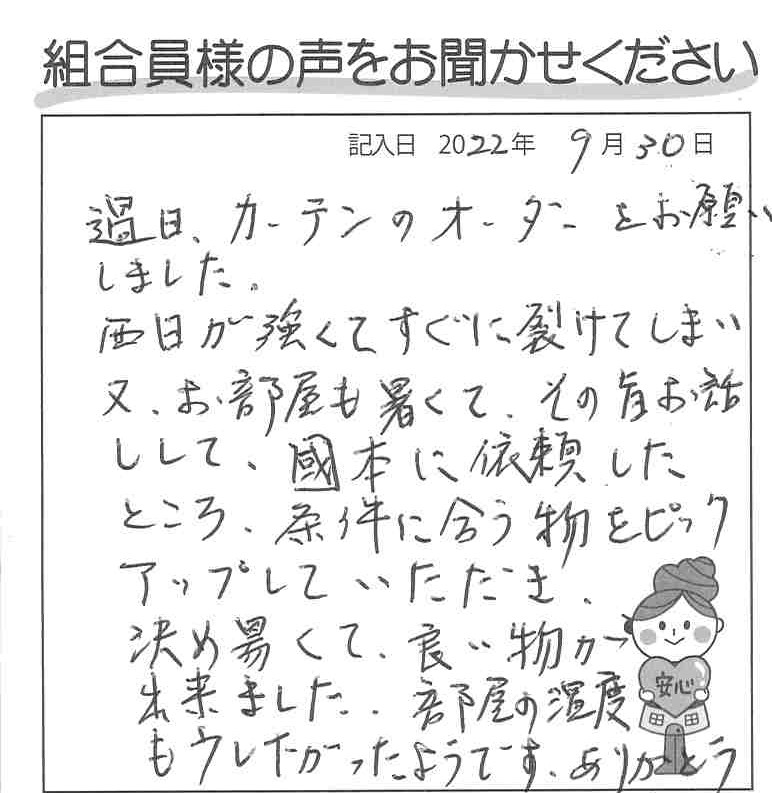 組合員様の声をお聞かせください
記入日 2022年 9月30日
過日、カーテンのオーダーをお願い
しました。
西日が強くてすぐに裂けてしまい
又、お部屋も暑くて、その旨お話
しして、國本に依頼した
ところ、条件に合う物をピック
アップしていただき、
決め易くて、良い物が
出来ました。部屋の温度
も少し下がったようです、ありがとう
安心